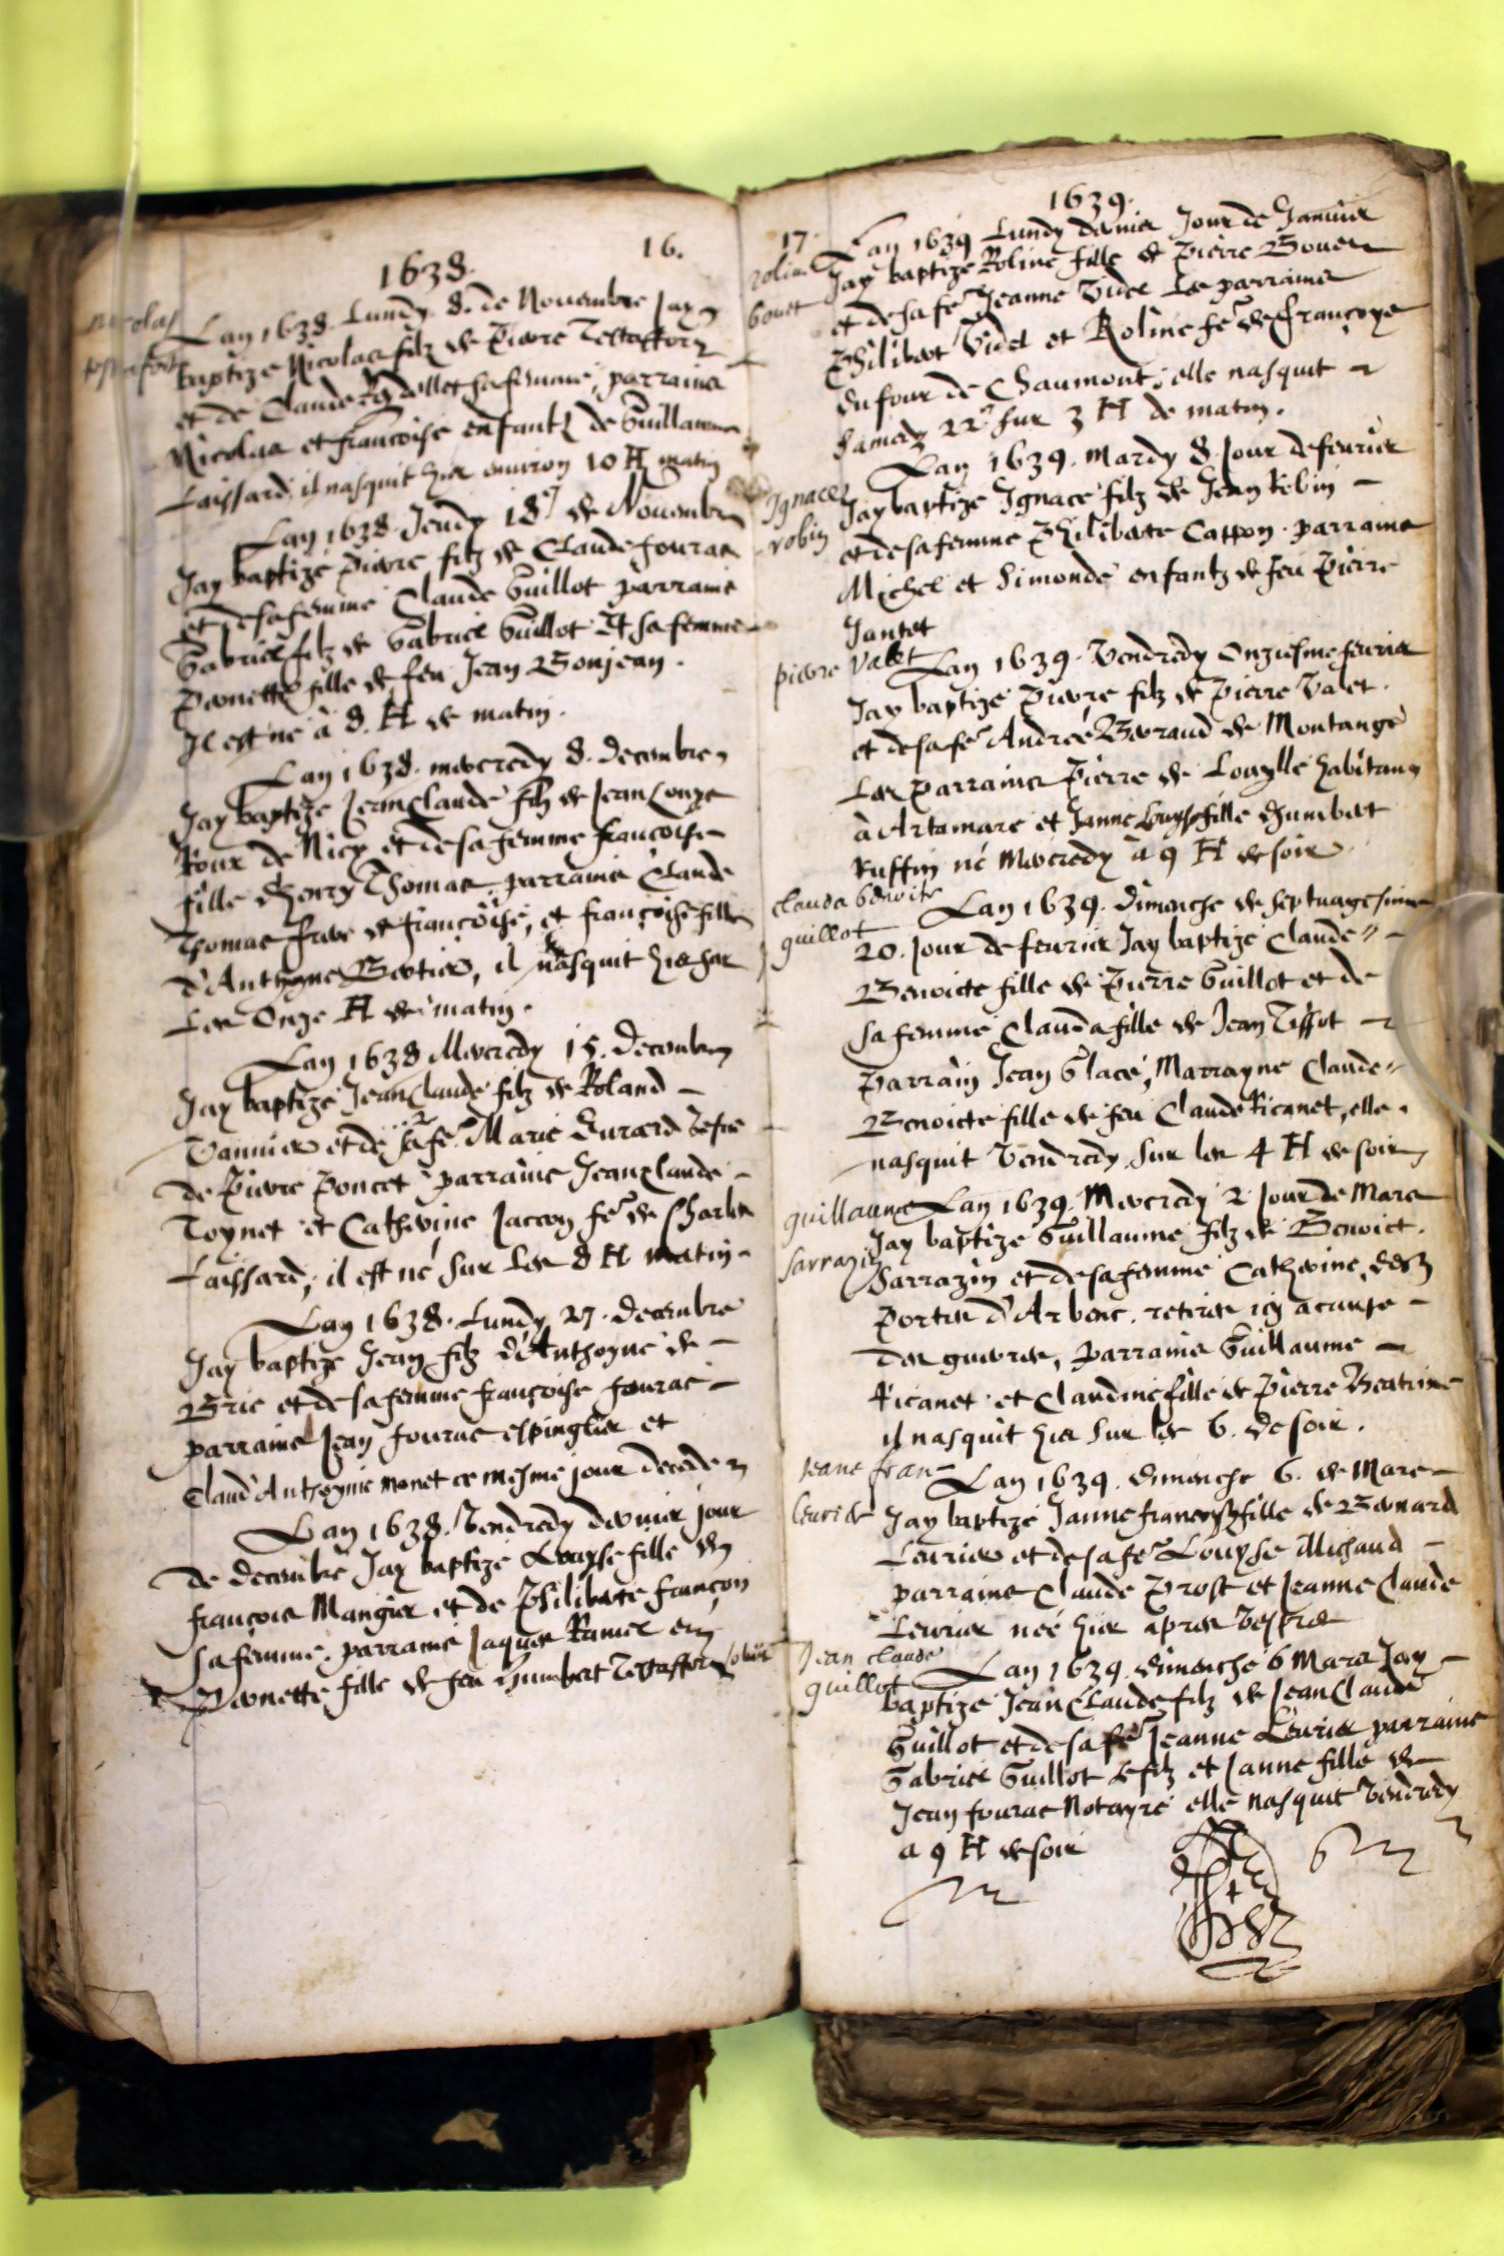 1638.
16.
nicolas
Lan 1638. Lundy 8. de Novembre Jay
baptizé Nicolas filz de Pierre Testaffort
et de Claude sa femme, parrains
Nicolas et francoise enfantz de Guillaume
Laissard. il nasquit hier environ 10 H matin
Lan 1638. Jeudy 18 de Novembre
Jay baptizé Pierre filz de Claude fourac
et desa femme Claude Guillot parrains
Gabriel filz de Gabriel Guillot et sa femme
Pernette fille de feu Jean Bonjean.
Il est né à 8. H de matin.
Lan 1638. mercredy 8. decembre
Jay baptizé Jeanclaude filz de Jean
Roux de et desa femme francoise
fille dhenry Thomas parrains Claude
Thomas frere de francoise, et francoise fille
d'Anthoyne Bertier, il nasquit hier sur
Les Onze H de matin.
Lan 1638 Mercredy 15. Decembre
Jay baptizé Jeanclaude filz de Roland
Vannier et de safe Marie Evrard
de Pierre Poncet parrains Jeanclaude
Toynet et Catherine Jaccon fe de Charles
Laissard, il est né sur Les 8 H matin
Lan 1638. Lundy 27. decembre
Jay baptizé Jean filz d'Anthoyne de
Brie et de sa femme françoise fourac
parrains Jean fourac espinglier et
Claud'Anthoynie monet ce mesme jour decede
Lan 1638. Vendredy dernier jour
de decembre Jay baptizé Louyse fille de
françois Mangier et de Philiberte françon
sa femme. parrains Jaques Ramel et
Pernette fille de feu Humbert Testaffort
1639.
17.
roline
bouet
Lan 1639 Lundy dernier Jour de Janvier
Jay baptizé Roline fille de Pierre Bouet
et de safe Jeanne Videl Les parrains
Philibert Videl et Roline fe de françoys
dufour de Chaumont; elle nasquit
samedy 22 sur 3 H de matin.
Ignace
robin
Lan 1639. mardy 8 Jour de fevrier
Jay baptizé Ignace filz de Jean Robin
et de sa femme Philiberte Cappon. parrains
Michel et Simonde enfantz de feu Pierre
Jantet
pierre valet
Lan 1639. Vendredy Onziesme fevrier
Jay baptizé Pierre filz de Pierre Valet.
et desafe Andree Beraud de Montange
Les parrains Pierre de Louylle habitant
à Artamare et Janne Louyse fille dhumbert
Ruffin né Mercredy à 9 H de soir
clauda benoite
guillot
Lan 1639. dimanche de septuagesime
20. Jour de fevrier Jay baptizé Claude
Benoicte fille de Pierre Guillot et de
sa femme Clauda fille de Jean Tissot
Parrain Jean Glace, Marrayne Claude
Benoicte fille de feu Claude Ricanet, elle
nasquit Vendredy sur les 4 H de soir
guillaume
sarrazin
Lan 1639. Mercredy 2 Jour de Mars
Jay baptizé Guillaume filz de Benoict
Sarrazin et desa femme Catherine desz
Portes d'Arbent. retirés icy a cause
des guerres, parrains Guillaume
Ricanet et Claudine fille de Pierre Beatrix
il nasquit hier sur les 6. de soir.
Jeane fran
levrier
Lan 1639. dimanche 6. de Mars
Jay baptizé Janne francoyse fille de Bernard
Levrier et desafe Louyse Michaud
parrains Claude Prost et Jeanne Claude
Levrier neé hier apres Vespres
Jean claude
guillot
Lan 1639. dimanche 6 Mars Jay
baptizé Jean Claude filz de Jean Claude
Guillot et de safe Jeanne Levrier parrains
Gabriel Guillot Le filz et Janne fille de
Jean fourac Notayre elle nasquit Vendredy
a 9 H de soir